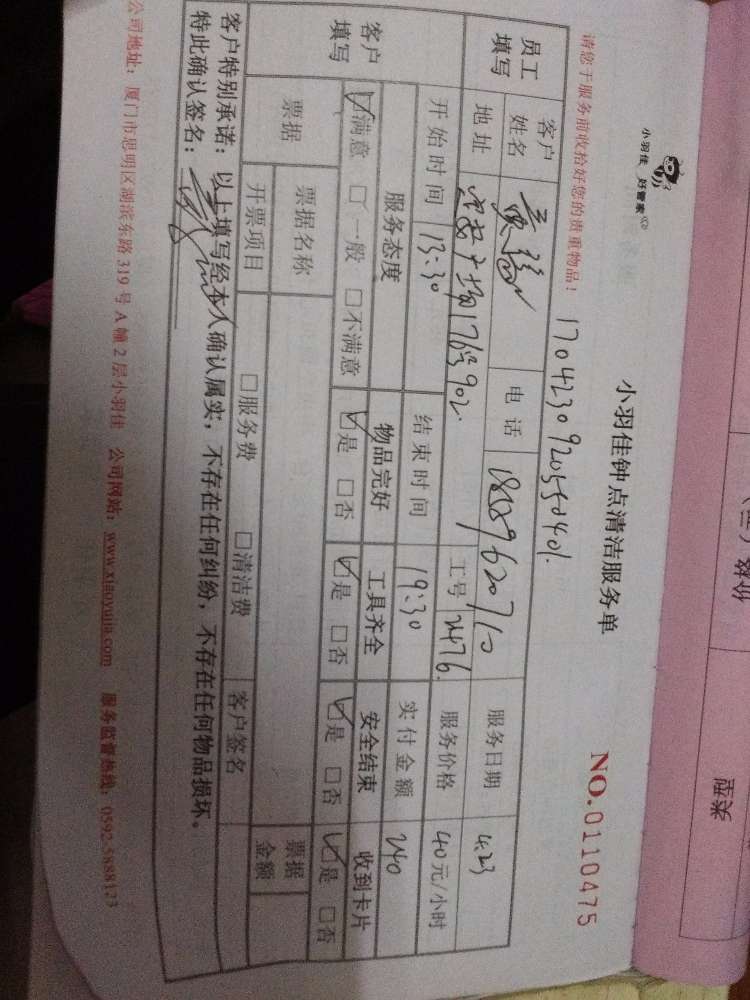 小羽佳 好管家
小羽佳钟点清洁服务单
NO.0110475
请您于服务前收拾好您的贵重物品！
员工填写
客户姓名
电话
服务日期 4.23
地址
工号 2476
服务价格 40元/小时
开始时间 13:30
结束时间 19:30
实付金额 240
客户填写
服务态度 物品完好 工具齐全 安全结束 收到卡片
☑满意 □一般 □不满意 ☑是 □否 ☑是 □否 ☑是 □否 ☑是 □否
票据
票据名称
票据金额
开票项目 □服务费 □清洁费 客户签名
客户特别承诺：以上填写经本人确认属实，不存在任何纠纷，不存在任何物品损坏。
特此确认签名：
公司地址：厦门市思明区湖滨东路319号A幢2层小羽佳 公司网站：www.xiaoyujia.com 服务监督热线：0592-5888123